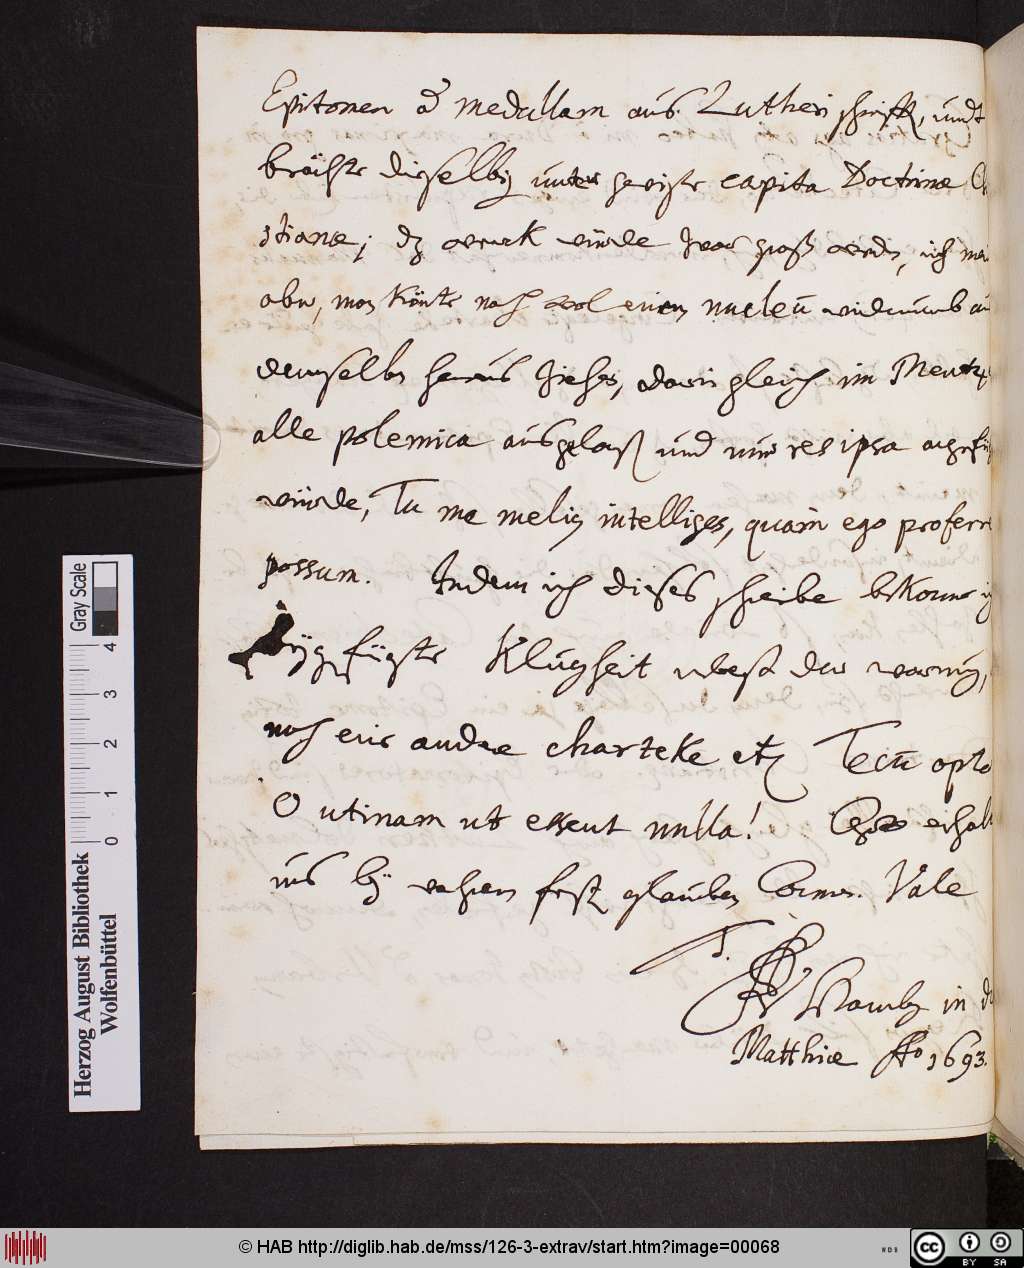 Epitomen et medullam aus Lutheri schrifft, undt
brächte dieselbig unter gewiße capita Doctrinæ
stianæ; dz werck würde zwar groß werden, ich
aber, man könte noch wol einen nucleū widerumb
demselben heraus ziehen, darin gleich im
alle polemica ausgelaß und nur res ipsa
würde, Tu me melius intelliges, quam ego
possum. Indem ich dieses schreibe bekomme
beygefügte Klugheit nebst der warnung,
noch eine andere charteke etc Tecū
O utinam ut essent nulla!
uns bey wahren fest glauben Vale
T.
in
Matthiæ Ao 1693.
Gray Scale
0 1 2 3 4
Herzog August Bibliothek
Wolfenbüttel
© HAB http://diglib.hab.de/mss/126-3-extrav/start.htm?image=00068
WDB
CC BY SA